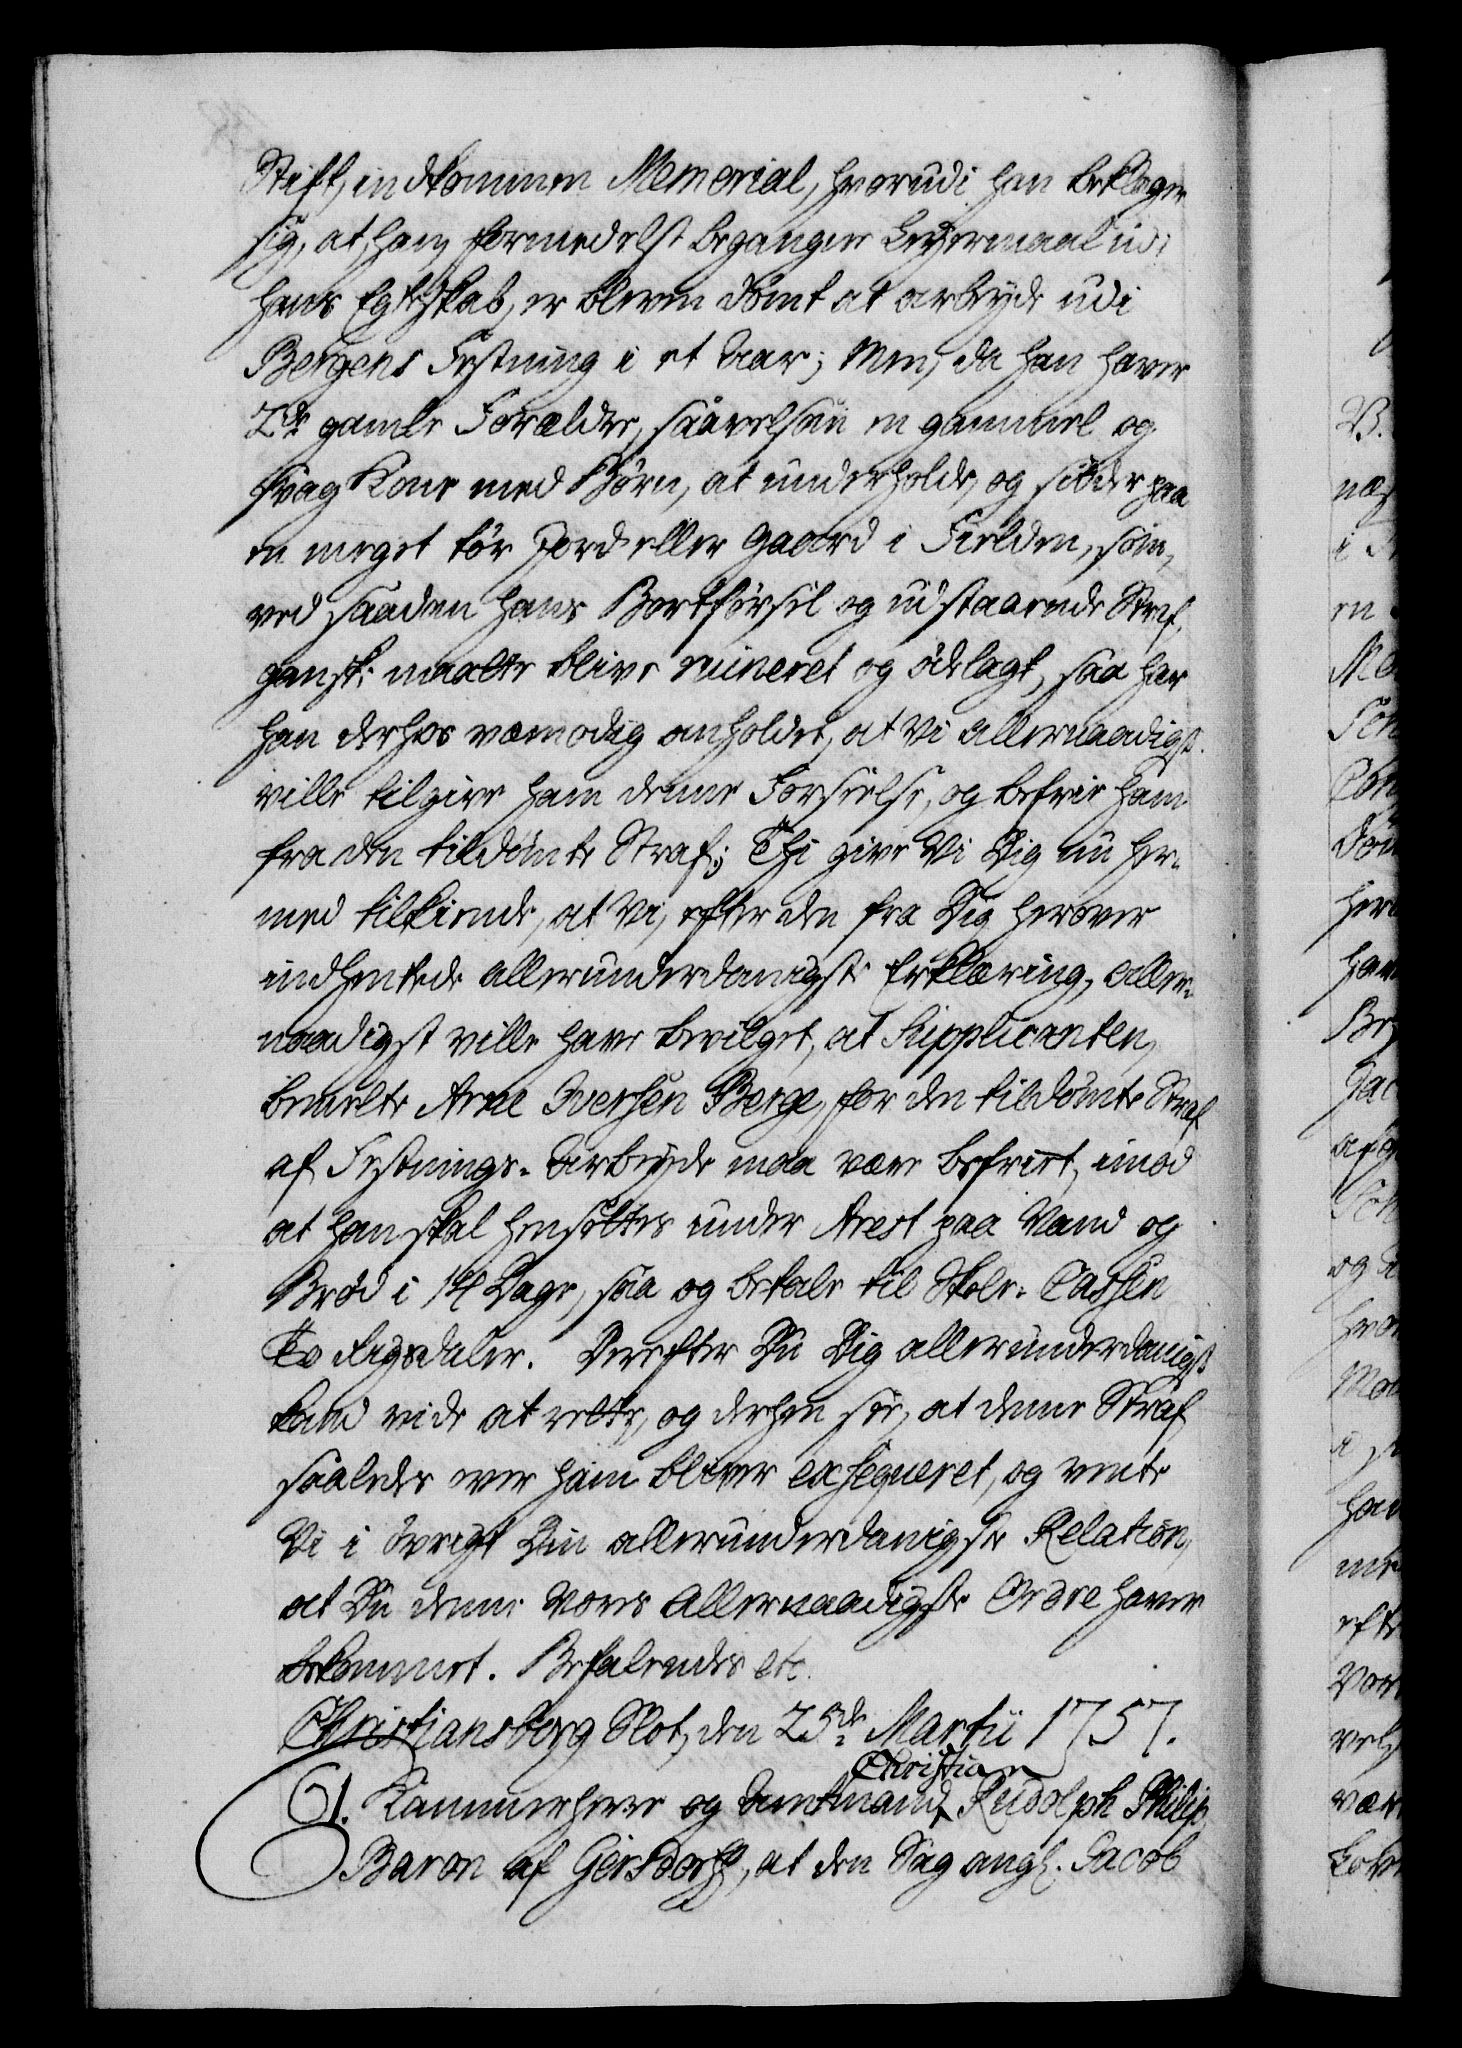 Stift, indkommen Memorial, hvorudi han beklager
sig, at han formedelst begangne Leyermaal udi
hans Egteskab, er bleven dømt at arbeyde udi
Bergens Festning i et Aar; Men, da han haver
2de gamle Forældre, saavelsom en gammel og
svag Kone med Børn, at underholde, og sidder paa
en meget tør Jord eller Gaard i Fielden, som,
ved saadan hans Bortførsel og udstaaende Straf,
gansk: maatte blive ruineret og ødelagt, saa har
han derhos vemodig anholdet, at Vi allernaadigst
ville tilgive ham denne Forseelse, og befrie ham
fra den tildømte Straf; Thi give Vi Dig nu her-
med tilkiende, at Vi, efter den fra Dig herover
indhentede allerunderdanigste Erklæring, aller-
naadigst ville have bevilget, at Supplicanten,
bemelte Arne Iversen Berge, for den tildømte Straf
af Festnings-Arbeyde maa være befriet, imod
at han skal hensættes under Arest paa Vand og
Brød i 14 Dage, saa og betale til Skole-Cassen
To Rigsdaler. Derefter Du Dig allerunderdanigst
kand vide at rette, og derhen see, at denne Straf
saaledes over ham bliver exseqveret, og vente
Vi i øvrigt Din allerunderdanigste Relation,
at Du denne Vores Allernaadigste Ordre haver
bekommet. Befalendes etc.
Christiansborg Slot, den 25de Martii 1757.
Christian
61. Kammerherre og Amtmand Rudolph Philip,
Baron af Gersdorff, at den Sag angl. Jacob